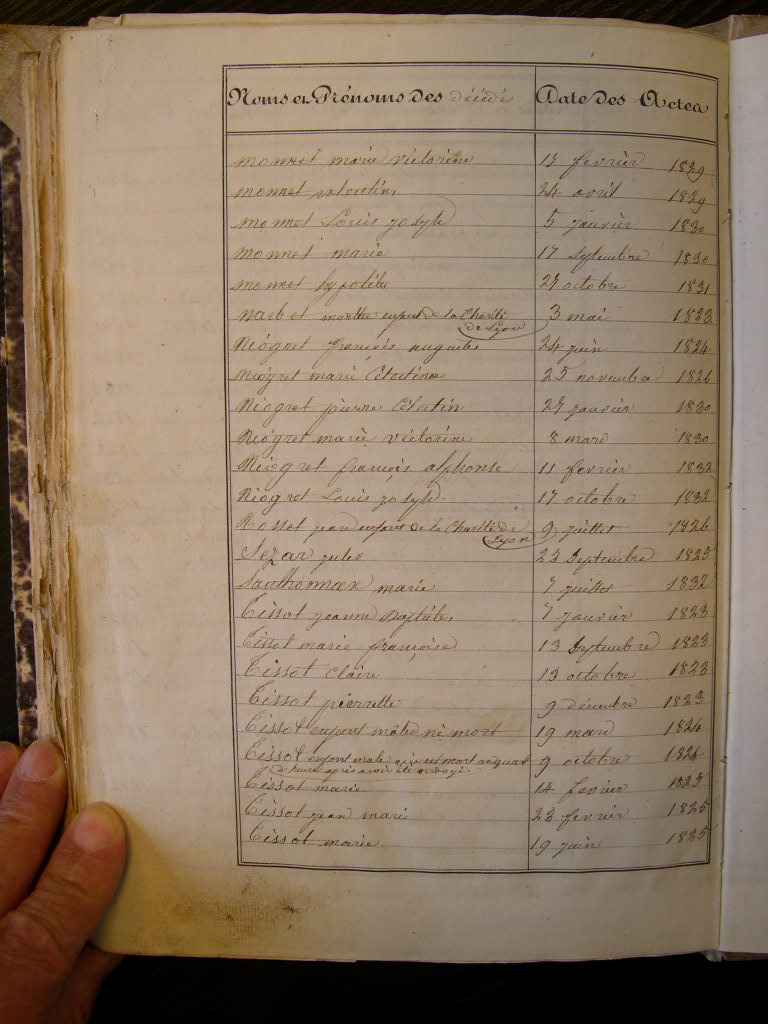 Noms et Prénoms des décédés Date des Actes
monnet marie victorine 17 fevrièr 1829
monnet valentin 24 avril 1829
monnet Louis joseph 5 janvièr 1830
monnet marie 17 septembre 1830
monnet hypolite 27 octobre 1831
narbet marthe enfant de la Charité 3 mai 1823
de Lyon
Niogret françois auguste 24 juin 1824
Niogret marie Célestine 25 novembre 1826
Niogret pierre Célestin 27 janvièr 1830
Niogret marie victorine 8 mars 1830
Niogret françois alphonse 11 fevrier 1832
Niogret Louis joseph 17 octobre 1832
Rosset jean enfant de la Charité de 9 juillet 1826
Lyon
Sezar jules 23 Septembre 1825
Santhonnax marie 7 juillet 1832
Tissot jeanne Baptiste 7 janvièr 1823
Tissot marie françoise 13 Septembre 1823
Tissot Claire 13 octobre 1823
Tissot pierrette 9 décembre 1823
Tissot enfant mâle né mort 19 mars 1824
Tissot enfant male qui est mort un quart 9 octobre 1824
d'heure après avoir été ondoyé
Tissot marie 14 fevrier 1825
Tissot jean marie 23 fevrier 1825
Tissot marie 19 juin 1825